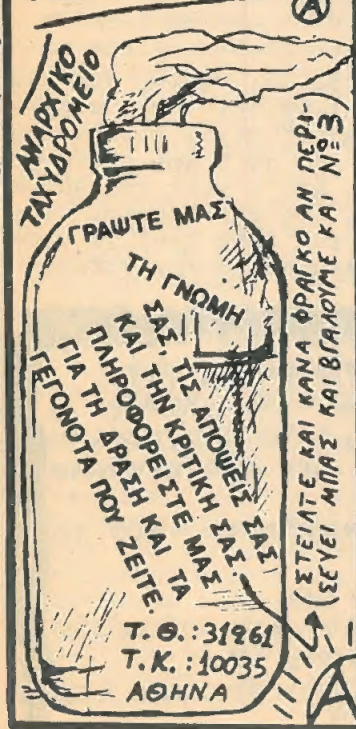 Α
ΑΝΑΡΧΙΚΟ
ΤΑΧΥΔΡΟΜΕΙΟ
ΓΡΑΨΤΕ ΜΑΣ
ΤΗ ΓΝΩΜΗ
ΣΑΣ, ΤΙΣ ΑΠΟΨΕΙΣ ΣΑΣ
ΚΑΙ ΤΗΝ ΚΡΙΤΙΚΗ ΣΑΣ.
ΠΛΗΡΟΦΟΡΕΙΣΤΕ ΜΑΣ
ΓΙΑ ΤΗ ΔΡΑΣΗ ΚΑΙ ΤΑ
ΓΕΓΟΝΟΤΑ ΠΟΥ ΖΕΙΤΕ.
Τ.Θ.:31961
Τ.Κ.:10035
ΑΘΗΝΑ
(ΣΤΕΙΛΤΕ ΚΑΙ ΚΑΝΑ ΦΡΑΓΚΟ ΑΝ ΠΕΡΙ-
ΣΕΥΕΙ ΜΠΑΣ ΚΑΙ ΒΓΑΛΟΥΜΕ ΚΑΙ Νº3)
Α